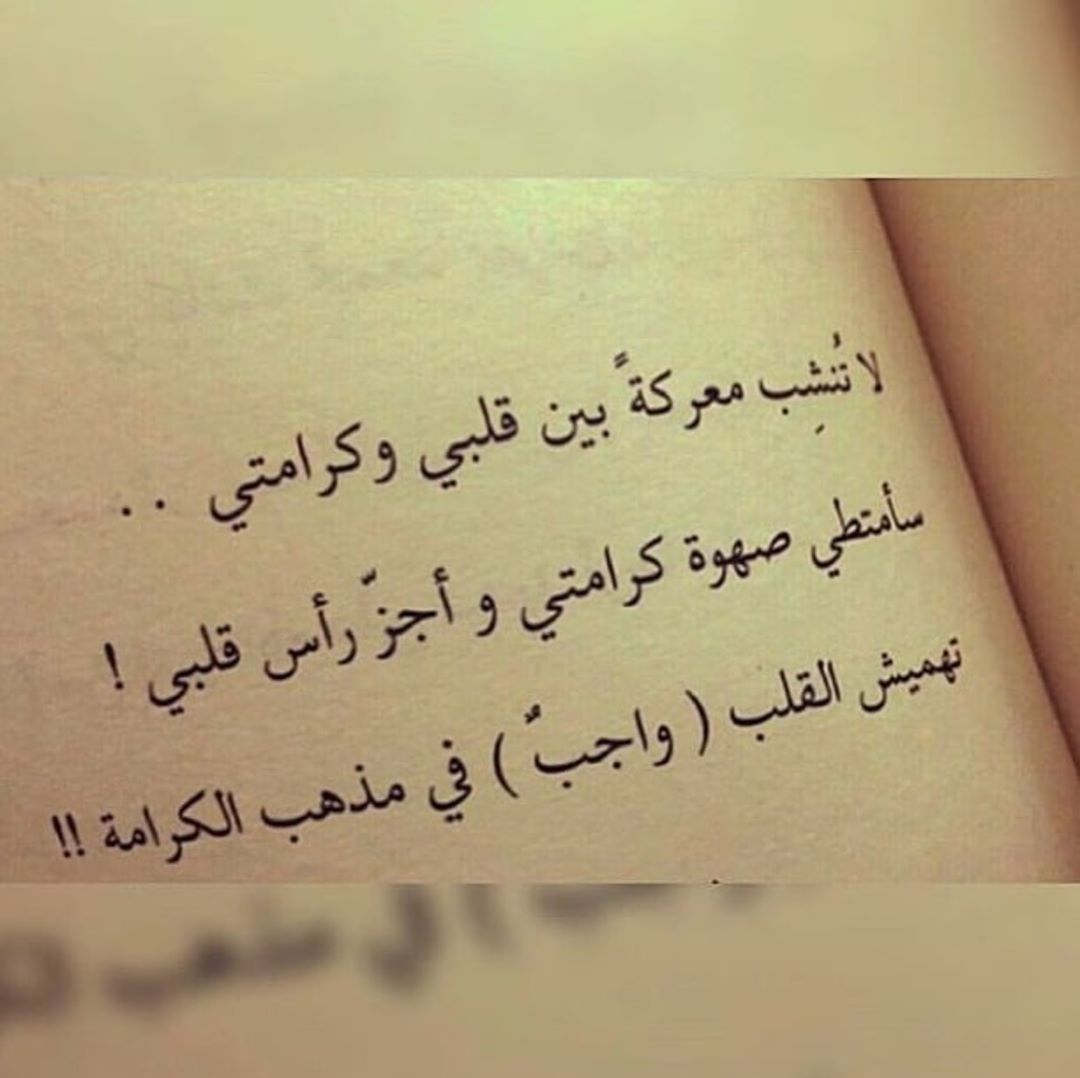 لا تُنشِب معركةً بين قلبي وكرامتي ..
سأمتطي صهوة كرامتي و أجزّ رأس قلبي !
تهميش القلب ( واجبٌ ) في مذهب الكرامة !!